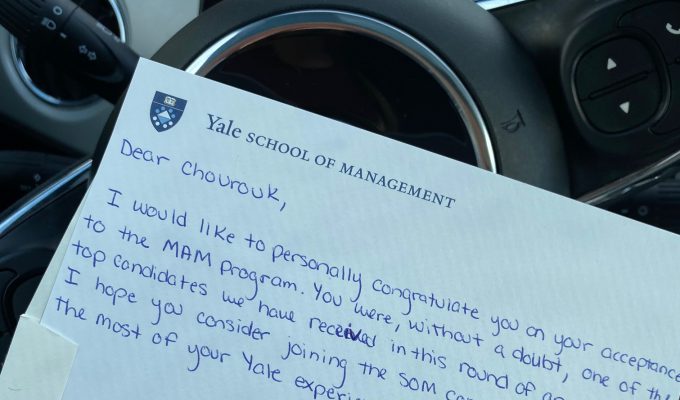 Yale SCHOOL OF MANAGEMENT
Dear Chourouk,
I would like to personally congratulate you on your acceptance
to the MAM Program. You were, without a doubt, one of the
top candidates we have received in this round of
I hope you consider joining the SOM
the most of your Yale